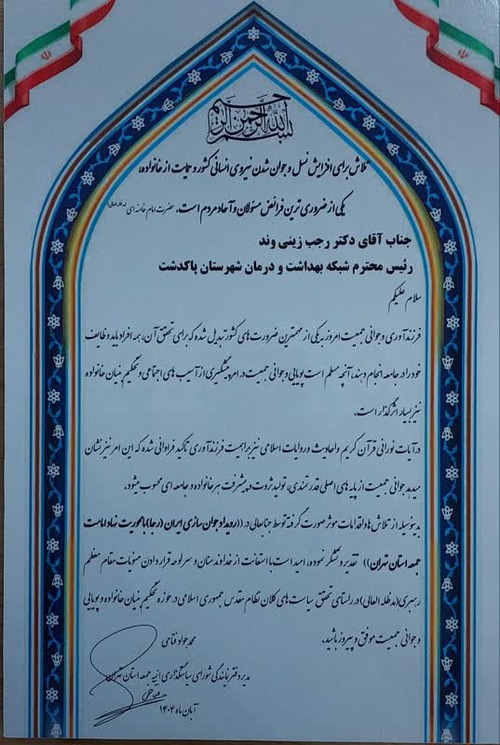 بسم الله الرحمن الرحیم
تلاش برای افزایش نسل و جوان شدن نیروی انسانی کشور و حمایت از خانواده،
یکی از ضروری ترین فرائض مسئولان و آحاد مردم است. حضرت امام خامنه ای
جناب آقای دکتر رجب زینی وند
رئیس محترم شبکه بهداشت و درمان شهرستان پاکدشت
سلام علیکم
فرزندآوری و جوانی جمعیت امروز به یکی از مهمترین ضرورت های کشور تبدیل شده که برای تحقق آن، همه افراد باید وظایف
خود را در جامعه انجام دهند، آنچه مسلم است پویایی و جوانی جمعیت در امر پیشگیری از آسیب های اجتماعی و تحکیم بنیان خانواده
نیز بسیار اثرگذار است.
در آیات نورانی قرآن کریم و احادیث و روایات اسلامی نیز بر اهمیت فرزندآوری تاکید فراوانی شده که این امر نیز نشان
میدهد جوانی جمعیت از پایه های اصلی قدرتمندی، تولید ثروت و پیشرفت هر خانواده و جامعه ای محسوب میشود.
بدینوسیله از تلاش ها و اقدامات موثر صورت گرفته توسط جنابعالی در ((رویداد جوان سازی ایران (رجا) با محوریت نهاد امامت
جمعه استان تهران)) تقدیر و تشکر نموده، امید است با استعانت از خداوند منان و سرلوحه قرار دادن منویات مقام معظم
رهبری (مدظله العالی) در راستای تحقق سیاست های کلان نظام مقدس جمهوری اسلامی در حوزه تحکیم بنیان خانواده و پویایی
و جوانی جمعیت موفق و پیروز باشید.
محمد جواد فتاحی
مدیر دفتر نمایندگی شورای سیاستگذاری ائمه جمعه استان تهران
آبان ماه ۱۴۰۴